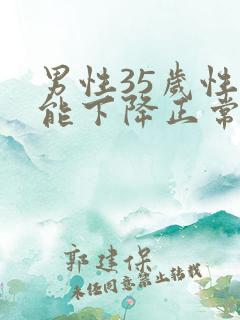 男性35歲性
能下降正常
郭建保
未经同意禁止转载